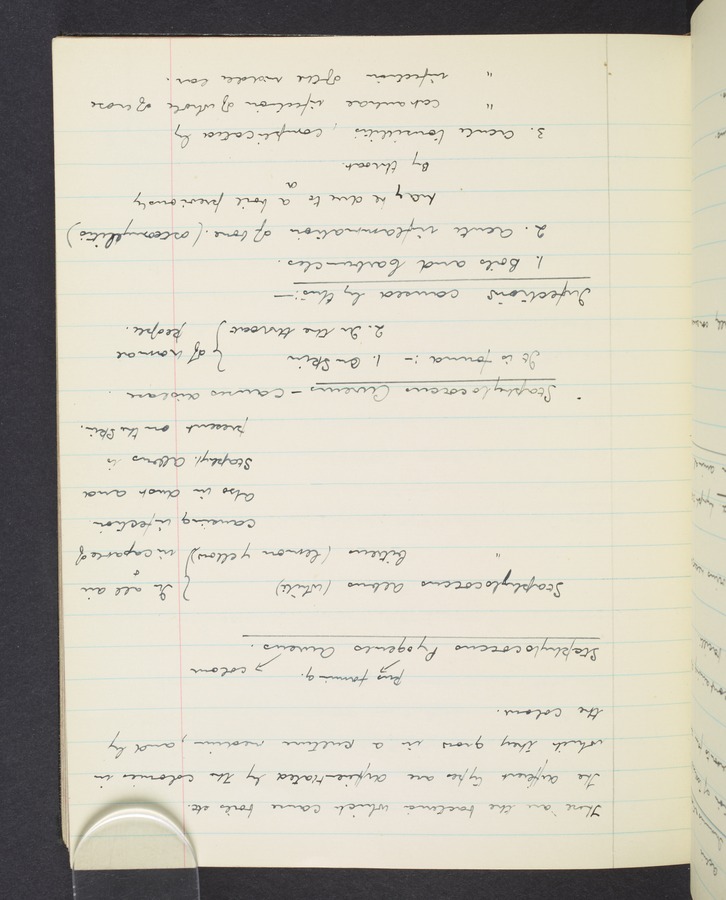 These are the bacteria which cause boils etc.
the different types are differentiated by the colonies in
which they grow in a culture medium, and by
the colour.
pus forming. colour
Staphylococcus Pyogenes Aureus.
Staphylococcus albus (white) } In all air
" citreus (lemon yellow) } + incapable of
causing infection
also in dust and
Staphy. albus is
present on the skin.
Staphylococcus Aureus - causes disease.
It is found :- 1. On Skin } of normal
2. In the throat } people.
Infections caused by this :-
1. Boils and Carbuncles.
2. Acute inflammation of bone. (osteomyelitis)
May be due to a boil previously
By throat.
3. Acute tonsillitis, complicated by
" catarrhal infection of whole of nose
" infection of the middle ear.